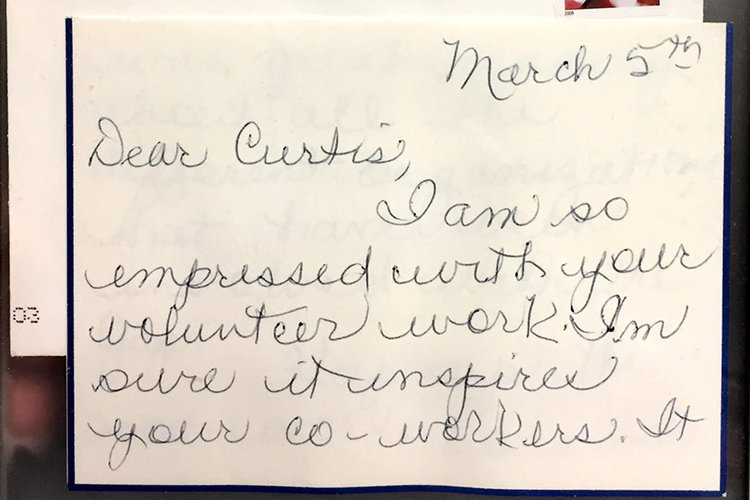 2009
March 5th
Dear Curtis,
I am so
empressed with your
volunteer work. I'm
sure it inspires
your co-workers. It
03